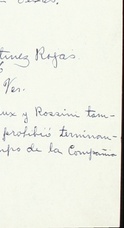 tínez Rojas.
Ver.
ux y Rossini tam-
prohibió terminan-
mpo de la Compañía